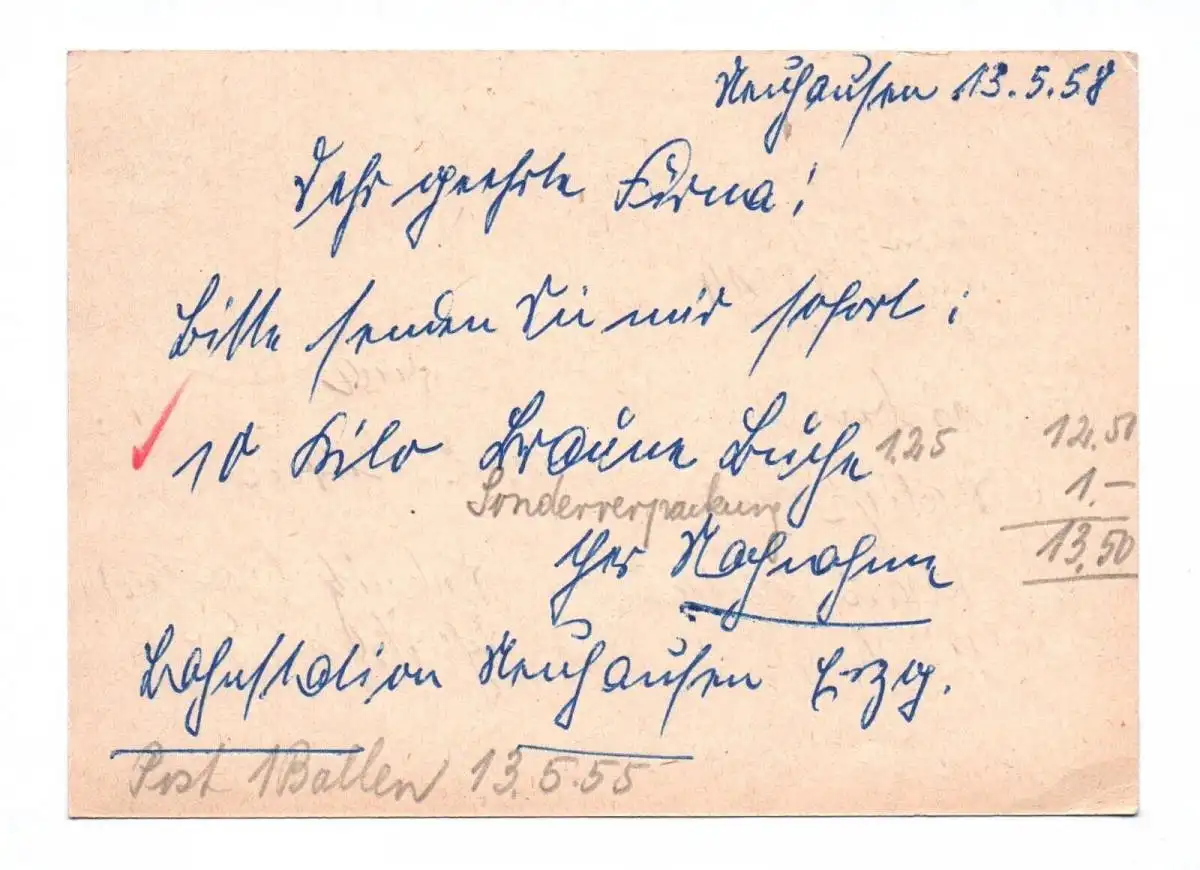 Neuhausen 13.5.58
Sehr geehrte Firma!
Bitte senden Sie mir sofort:
10 Kilo Braune Buche 1.25 12.50
Sonderverpackung 1.—
per Nachnahme 13,50
Bahnstation Neuhausen Erzg.
Post 1 Ballen 13.5.55